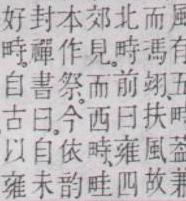 風有五畤蓋兼
而馮翊、扶風故
北畤。前曰雍四
郊見。而西畤、畦
本作祭。今依韵
封禪書曰自未
好畤。自古以雍